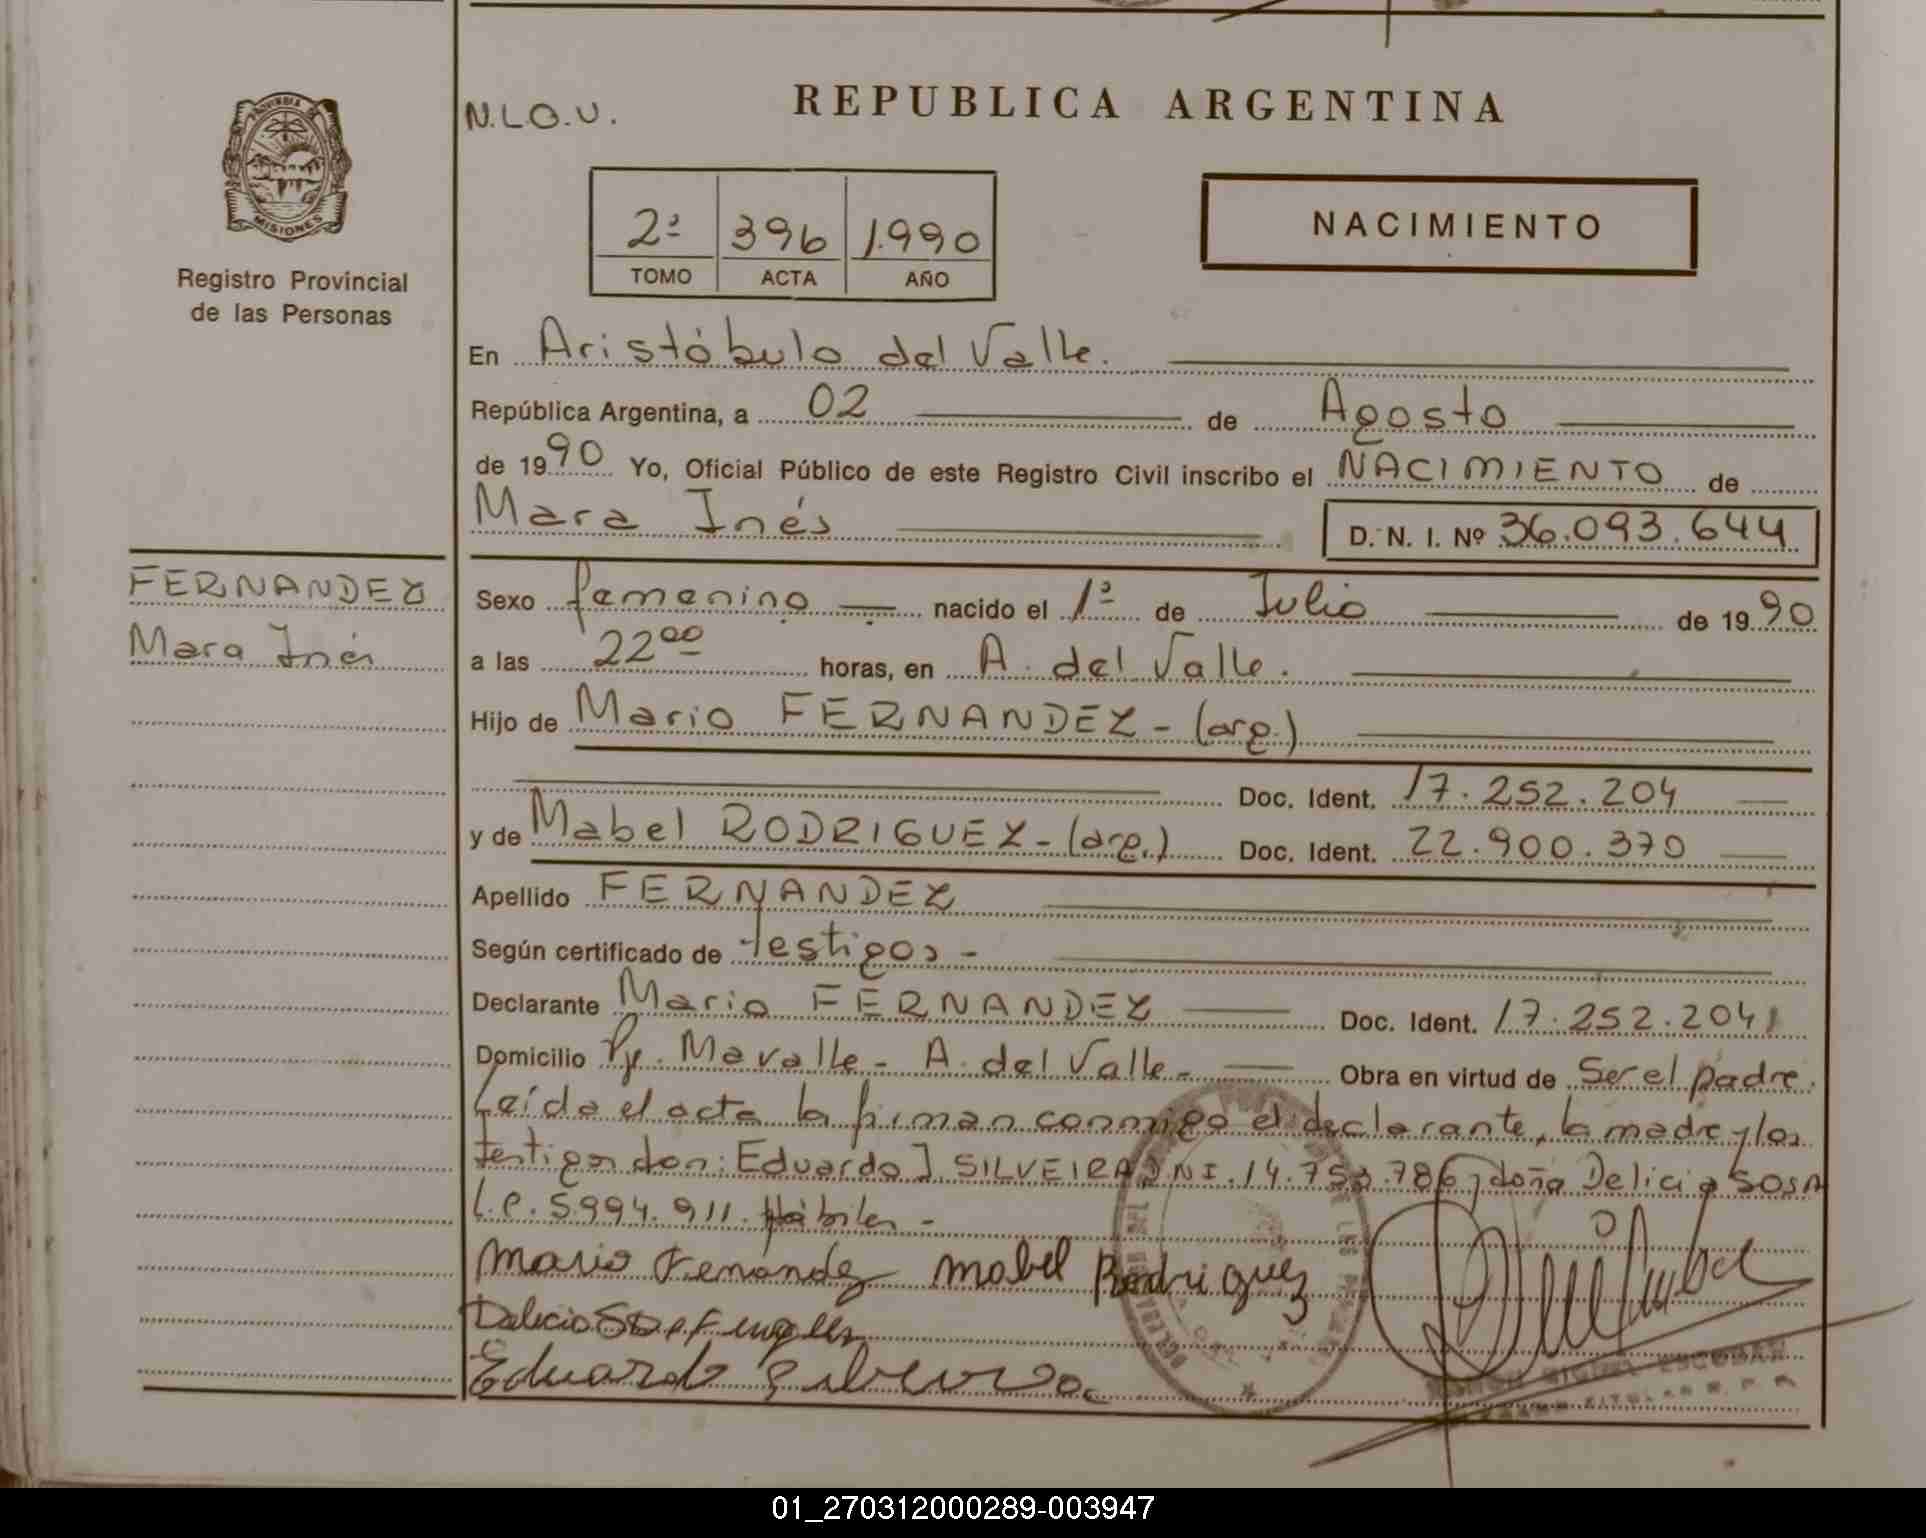 PROVINCIA DE
MISIONES
Registro Provincial
de las Personas
FERNANDEZ
Mara Inés
N.L.O.U.
REPUBLICA ARGENTINA
2º 396 1.990
TOMO ACTA AÑO
NACIMIENTO
En Aristóbulo del Valle.
República Argentina, a 02 de Agosto
de 1990 Yo, Oficial Público de este Registro Civil inscribo el NACIMIENTO de
Mara Inés D. N. I. Nº 36.093.644
Sexo femenino nacido el 1º de Julio de 1990
a las 22⁰⁰ horas, en A. del Valle.
Hijo de Mario FERNANDEZ - (arg.)
Doc. Ident. 17.252.204
y de Mabel RODRIGUEZ - (arg.) Doc. Ident. 22.900.370
Apellido FERNANDEZ
Según certificado de testigos -
Declarante Mario FERNANDEZ Doc. Ident. 17.252.204
Domicilio Pje. Mavalle - A. del Valle - Obra en virtud de Ser el padre.
Leída el acta la firman conmigo el declarante, la madre y los
testigos don: Eduardo J. SILVEIRA DNI. 14.753.786 y doña Delicia SOSA
L.C. 5.994.911. Hábiles -
Mario Fernandez Mabel Rodriguez
Eduardo Silveira
ESCOBAR
TITULAR R. P. P.
01_270312000289-003947